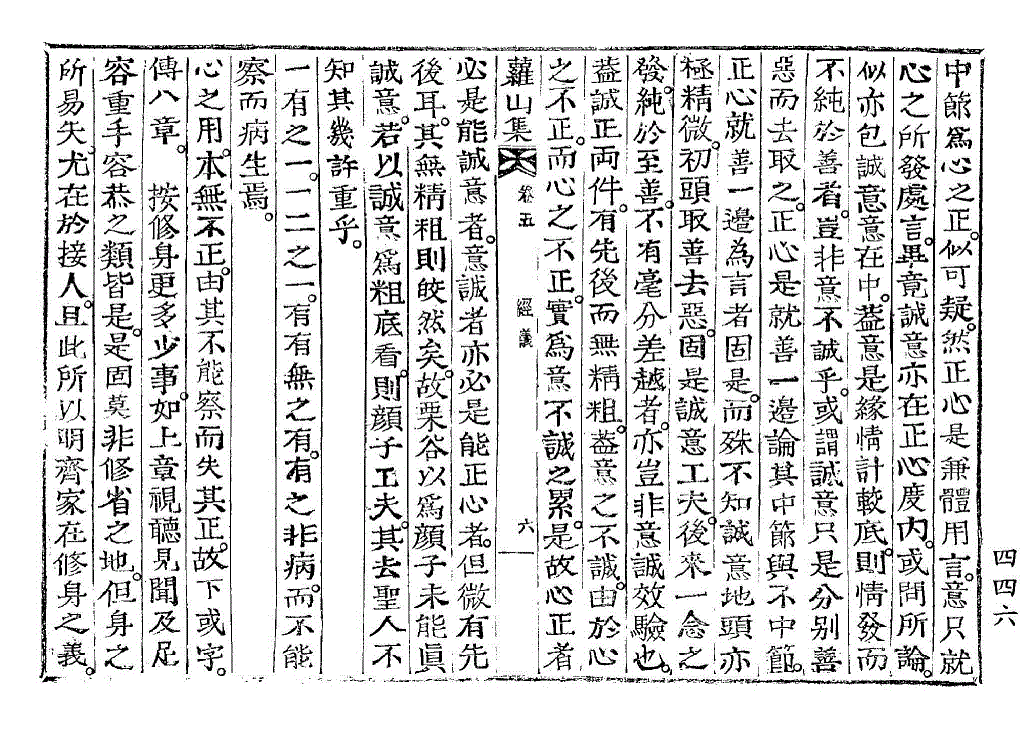 中節爲心之正。似可疑。然正心是兼體用言。意只就
心之所發處言。畢竟誠意亦在正心度內。或問所論。
似亦包誠意意在中。盖意是緣情計較底。則情發而
不純於善者。豈非意不誠乎。或謂誠意只是分別善
惡而去取之。正心是就善一邊論其中節與不中節。
正心就善一邊為言者固是。而殊不知誠意地頭亦
極精微。初頭取善去惡。固是誠意工夫。後來一念之
發。純於至善。不有毫分差越者。亦豈非意誠效驗也。
盖誠正両件。有先後而無精粗。盖意之不誠。由於心
之不正。而心之不正。實爲意不誠之累。是故心正者
蘿山集 卷五 經義 六
必是能誠意者。意誠者亦必是能正心者。但微有先
後耳。其無精粗則皎然矣。故栗谷以爲顔子未能眞
誠意。若以誠意爲粗底看。則顔子工夫。其去聖人不
知其幾許重乎。
一有之一。一二之一。有有無之有。有之非病。而不能
察而病生焉。
心之用。本無不正。由其不能察而失其正。故下或字。
傳八章。 按修身更多少事。如上章視聽見聞及足
容重手容恭之類皆是。是固莫非修省之地。但身之
所易失。尤在於接人。且此所以明齊家在修身之義。
四四六